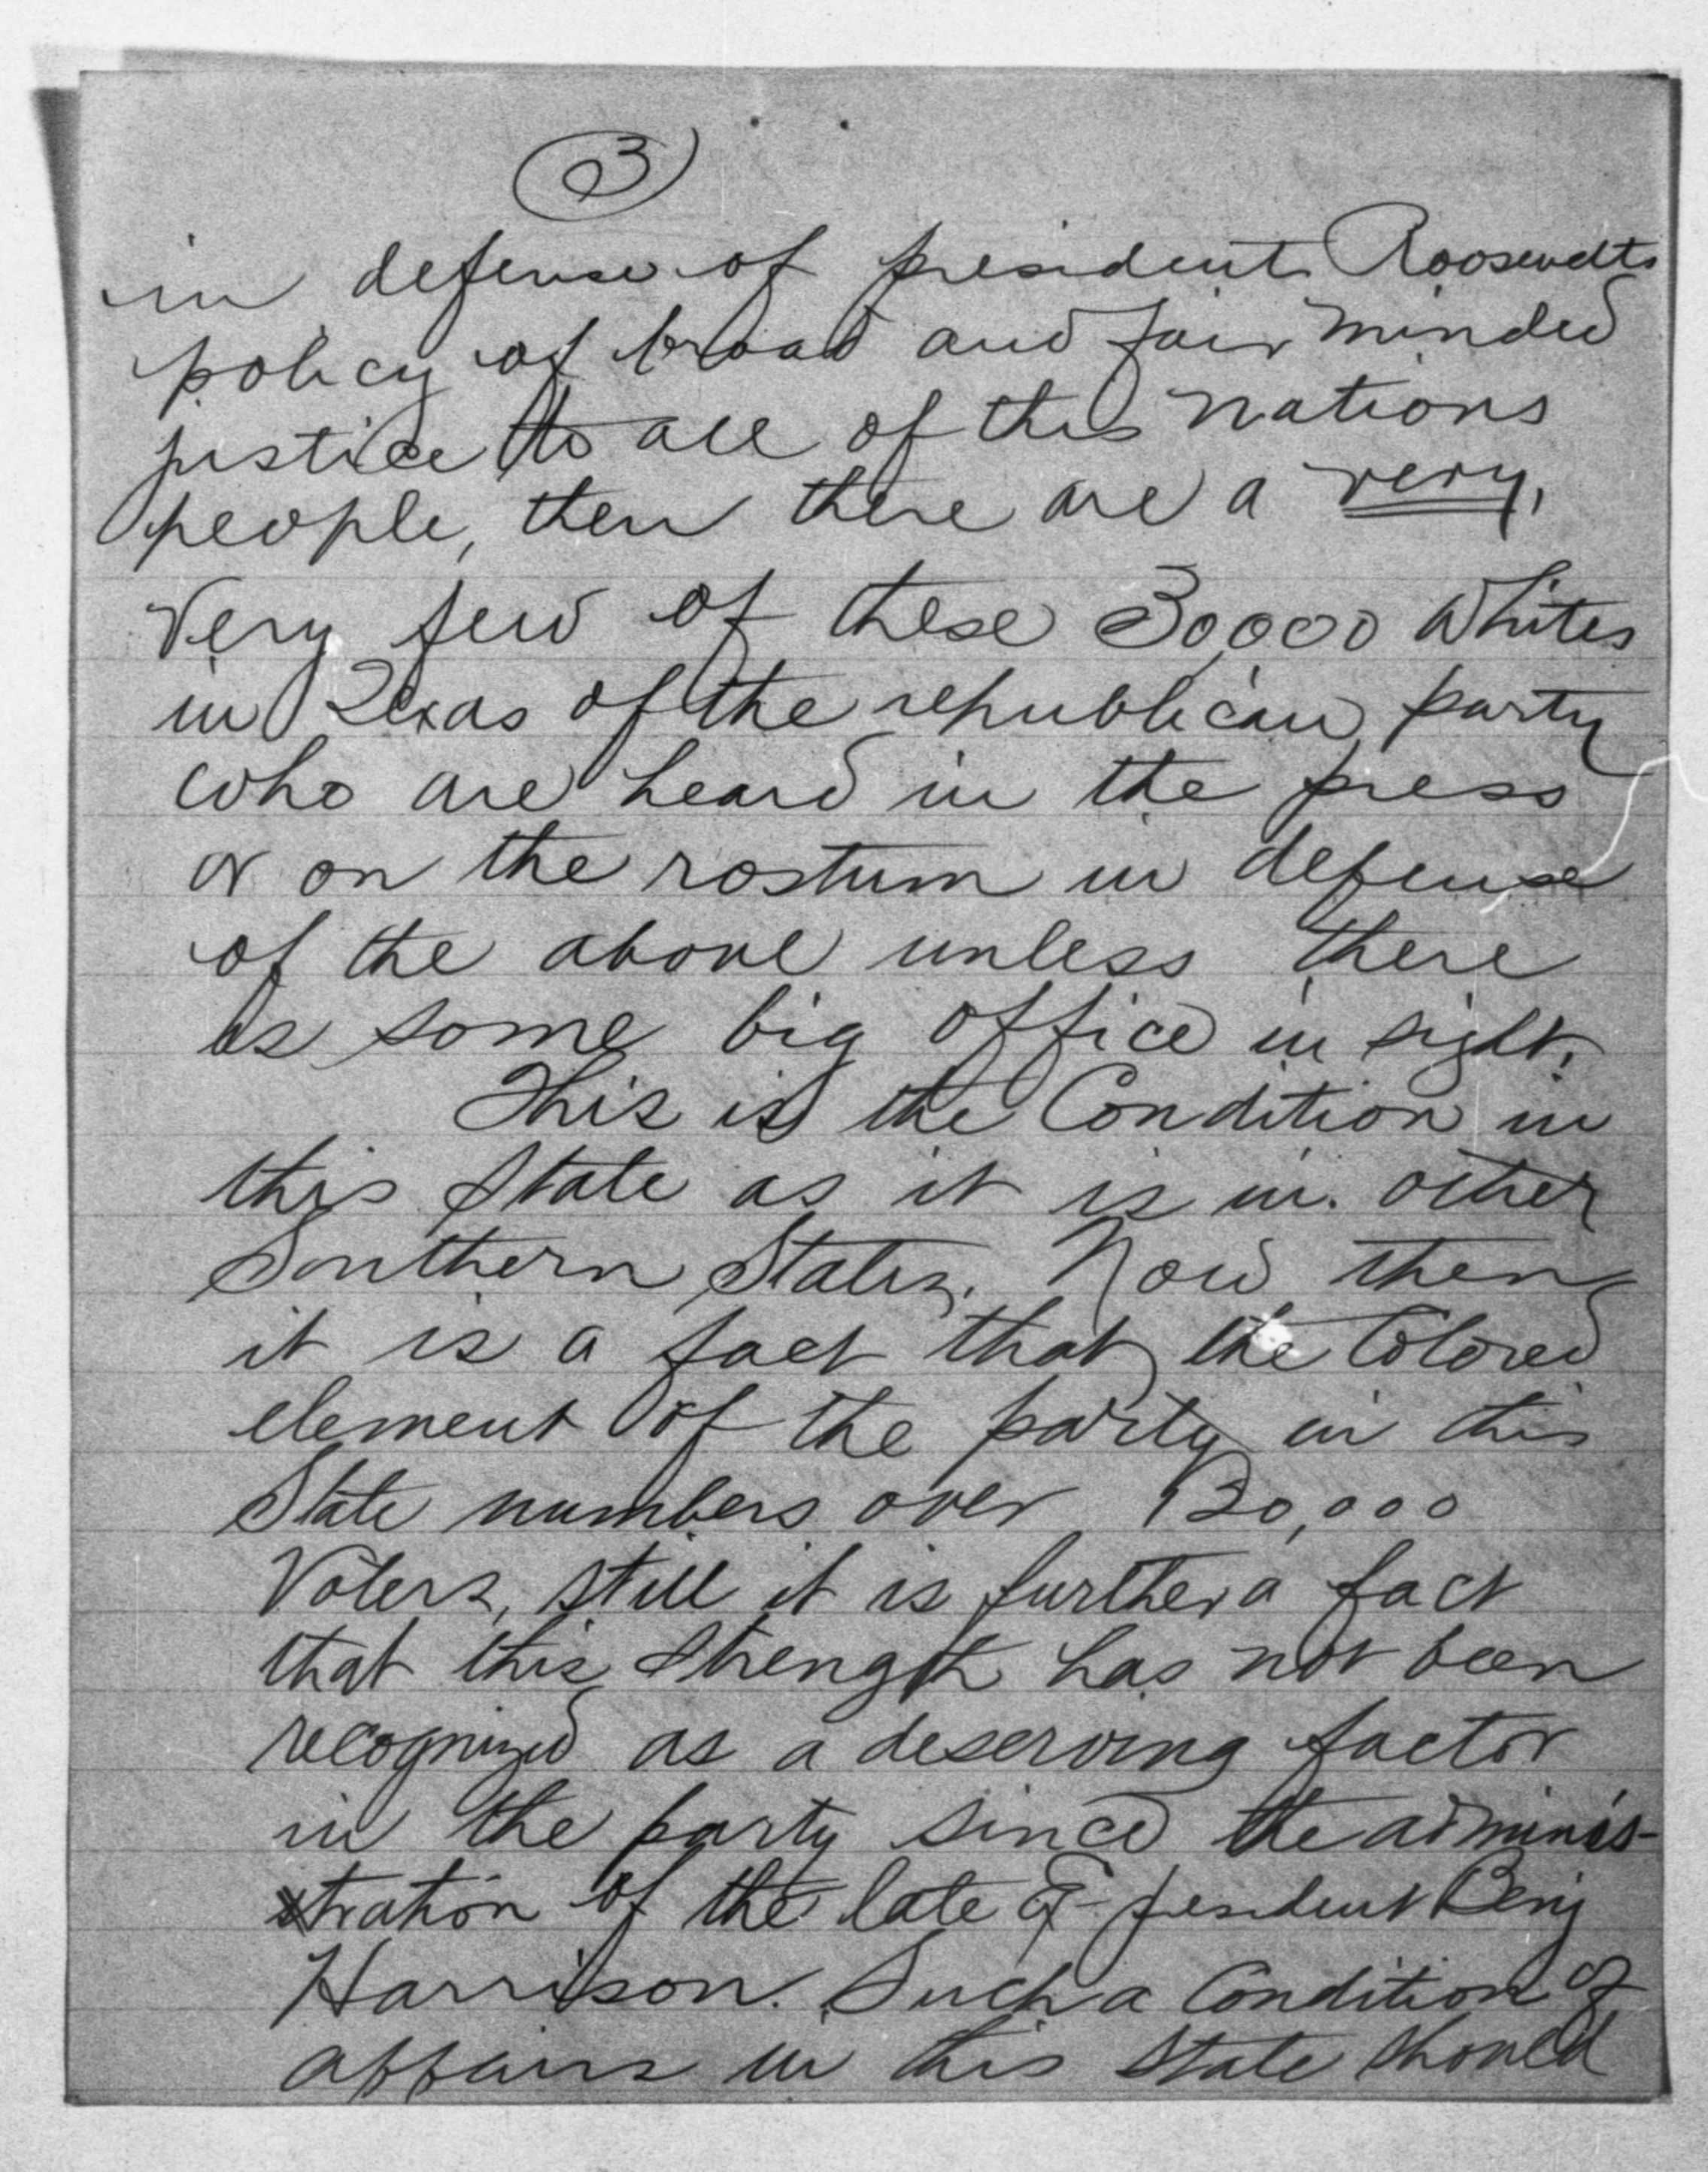 3
in defense of president Roosevelts
policy of broad and fair minded
justice to all of this nations
people, then there are a very,
Very few of these 30,000 Whites
in Texas of the republican party
who are heard in the press
or on the rostum in defense
of the above unless there
is some big office in sight.
This is the Condition in
this State as it is in other
Southern States. Now then
it is a fact that the Colored
element of the party in this
State numbers over 130,000
Voters, still it is further a fact
that this strength has not been
recognized as a deserving factor
in the party since the adminis-
tration of the late Ex-president Benj
Harrison. Such a Condition of
affairs in this state should